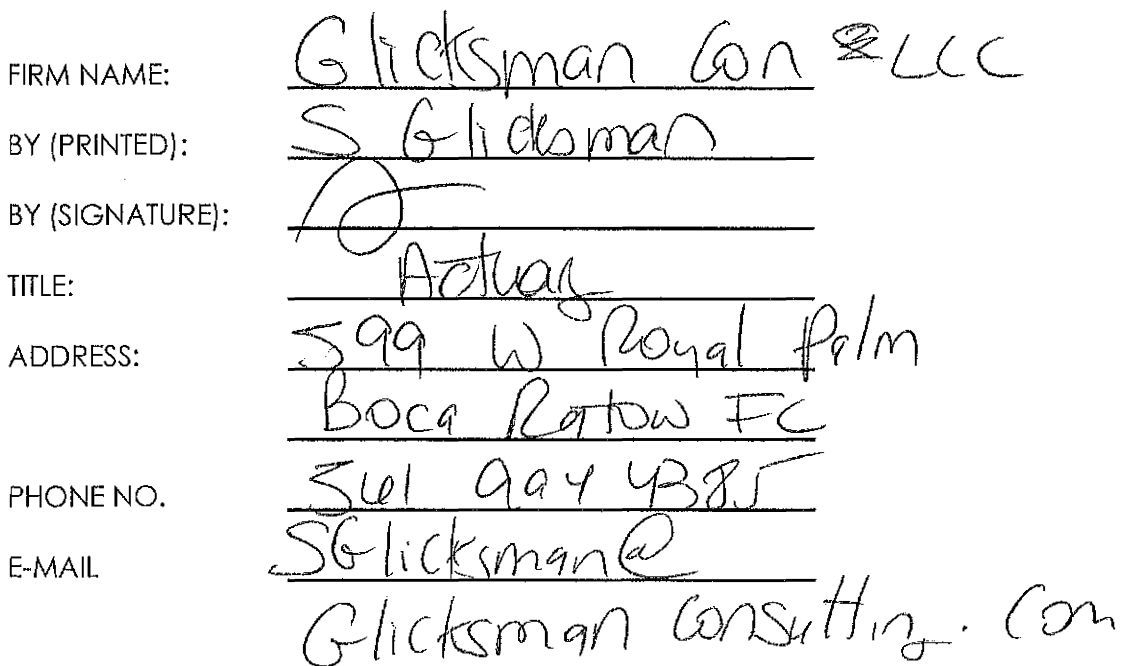 FIRM NAME: Glicksman Con LLC
BY (PRINTED): S Glicksman
BY (SIGNATURE):
TITLE: Actuary
ADDRESS: 599 W Royal Palm
Boca Raton FL
PHONE NO. 561 994 4385
E-MAIL SGlicksman@
Glicksman Consulting.com